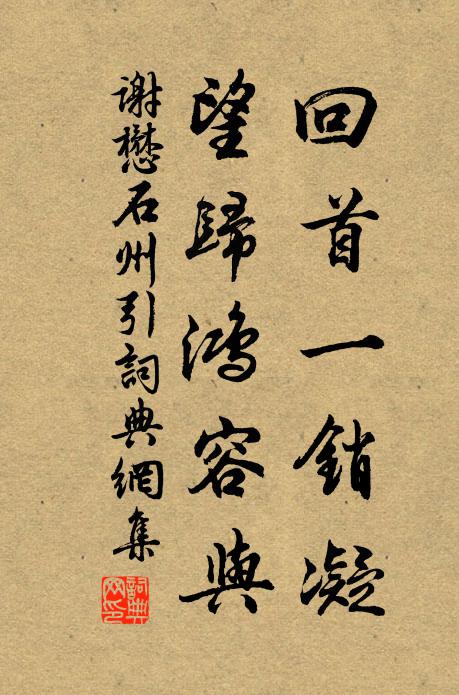 回首一銷凝
望歸鴻容與
謝懋石州引詞典網集
詞典網印